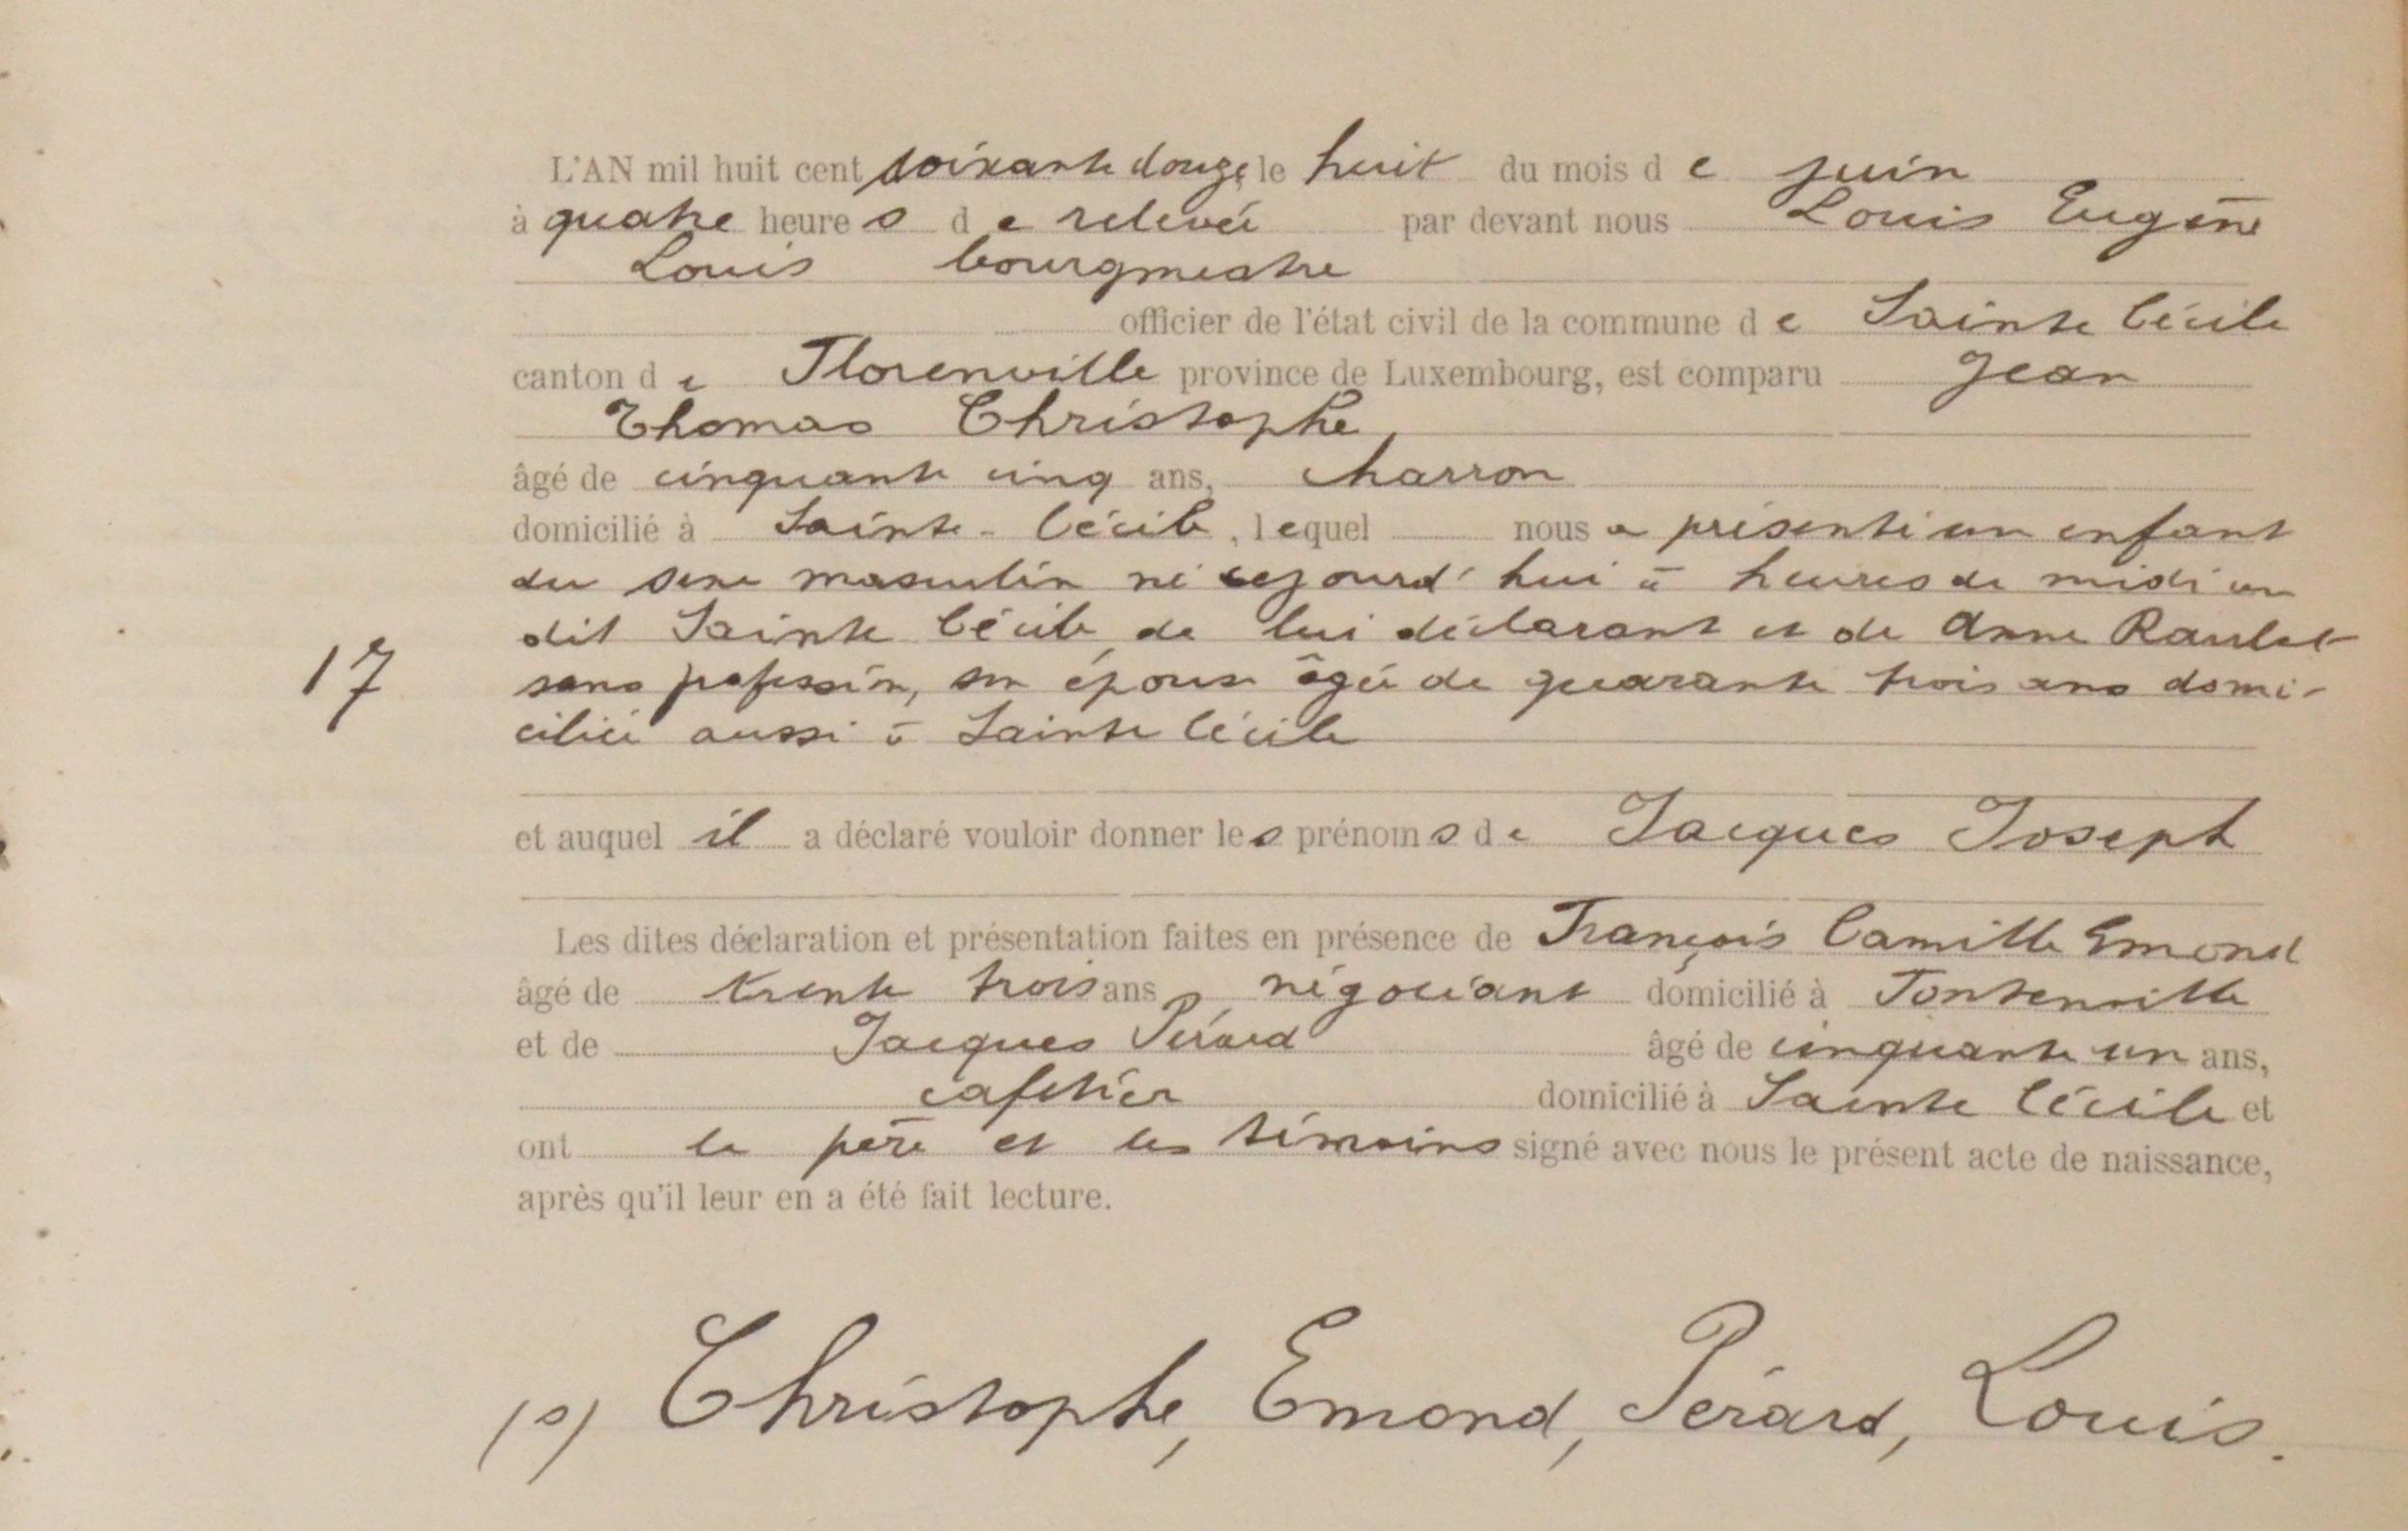 L'AN mil huit cent soixante douze le huit du mois de juin
à quatre heures de relevée par devant nous Louis Eugène
Louis bourgmestre
officier de l'état civil de la commune de Sainte Cécile
canton de Florenville province de Luxembourg, est comparu Jean
Thomas Christophe,
âgé de cinquante cinq ans, charron
domicilié à Sainte-Cécile, lequel nous a présenté un enfant
du sexe masculin né cejourd'hui à heures de midi au
dit Sainte Cécile, de lui déclarant et de Anne Raulet
17
sans profession, son épouse âgée de quarante trois ans domi-
ciliée aussi à Sainte Cécile
et auquel il a déclaré vouloir donner les prénoms de Jacques Joseph
Les dites déclaration et présentation faites en présence de François Camille Emond
âgé de trente trois ans, négociant domicilié à Fontenoille
et de Jacques Pérard âgé de cinquante un ans,
cafetier domicilié à Sainte Cécile et
ont le père et les témoins signé avec nous le présent acte de naissance,
après qu'il leur en a été fait lecture.
(s) Christophe, Emond, Pérard, Louis.